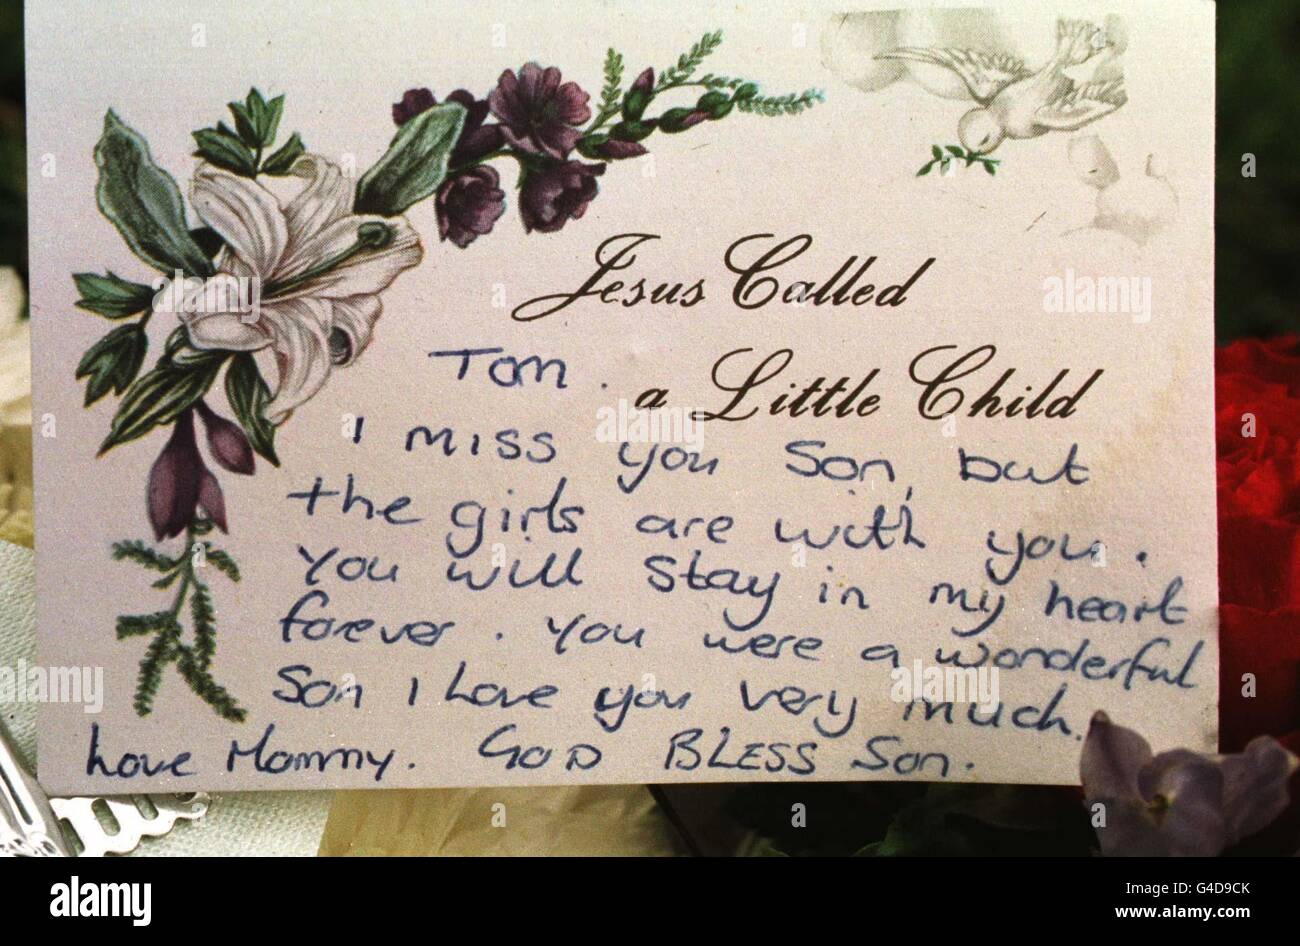 Jesus Called
a Little Child
Tom.
I miss you Son, but
the girls are with you.
You will stay in my heart
forever. You were a wonderful
Son I Love you very much.
Love Mommy. GOD BLESS Son.
alamy
alamy
Image ID: G4D9CK
www.alamy.com